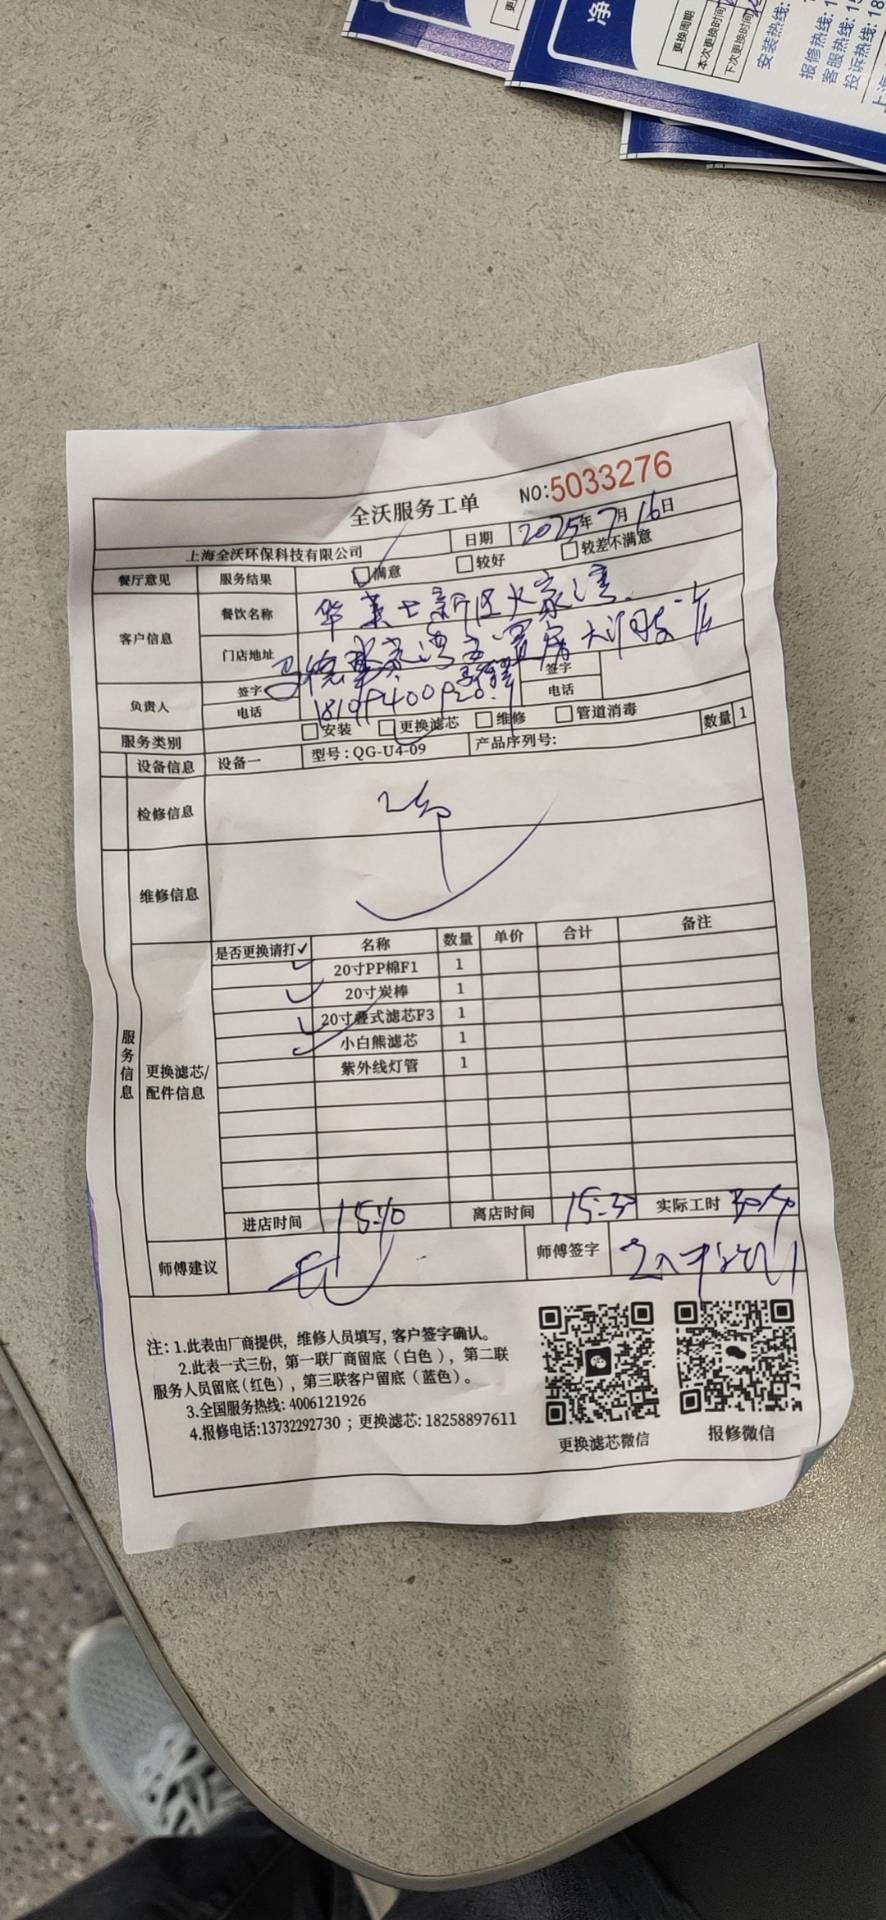 净
更换周期
本次更换时间
下次更换时间
安装热线:
报修热线: 1
客服热线: 15
投诉热线: 18
全沃服务工单 NO:5033276
上海全沃环保科技有限公司 日期 2025年7月16日
餐厅意见 服务结果 满意 较好 较差不满意
客户信息 餐饮名称 华莱士新区火家湾
门店地址
负责人 签字 签字
电话 电话
服务类别 安装 更换滤芯 维修 管道消毒
设备信息 设备一 型号:QG-U4-09 产品序列号: 数量 1
检修信息
维修信息
服务信息
更换滤芯/配件信息
是否更换请打✓ 名称 数量 单价 合计 备注
✓ 20寸PP棉F1 1
✓ 20寸炭棒 1
✓ 20寸叠式滤芯F3 1
✓ 小白熊滤芯 1
紫外线灯管 1
进店时间 15:10 离店时间 15:30 实际工时
师傅建议 师傅签字
注: 1.此表由厂商提供，维修人员填写, 客户签字确认。
2.此表一式三份，第一联厂商留底（白色），第二联
服务人员留底(红色)，第三联客户留底（蓝色）。
3.全国服务热线: 4006121926
4.报修电话:13732292730；更换滤芯: 18258897611
更换滤芯微信 报修微信